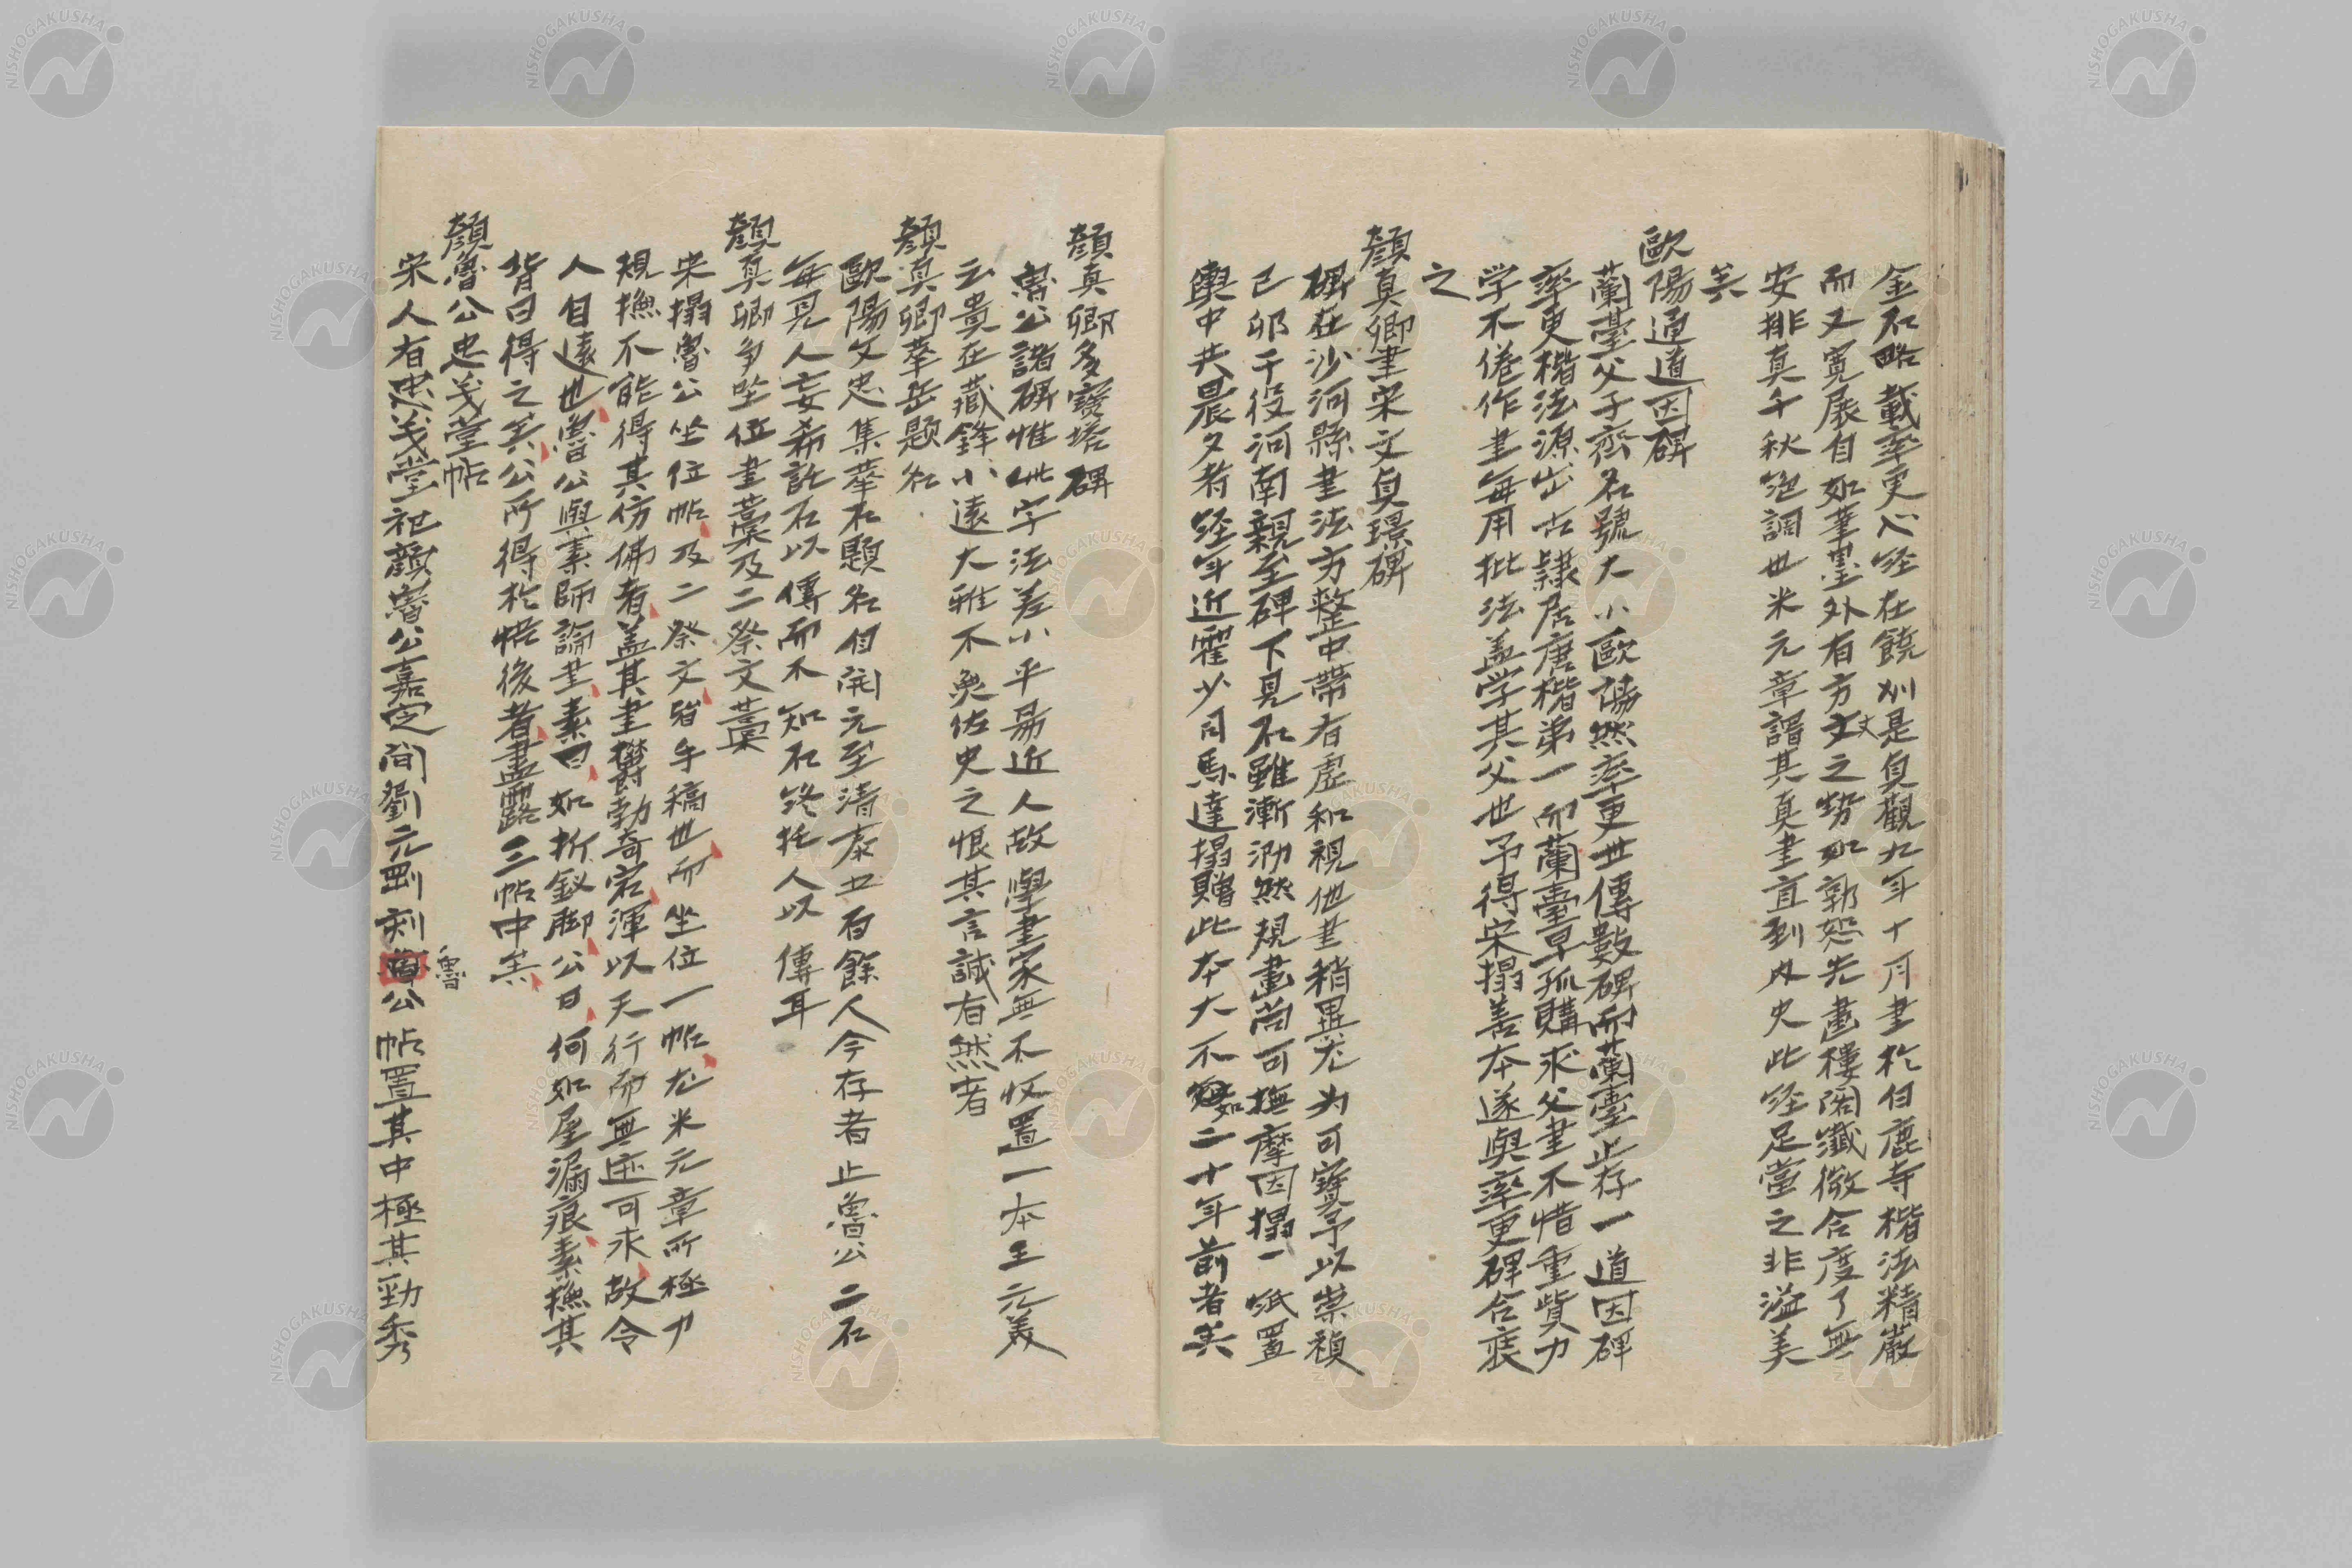 金石略載率更心経在饒州是貞觀九年十月書於白鹿寺楷法精嚴
而又寛展自如筆墨外有方丈之勢如郭恕先畫樓閣纖微合度了無
安排真千秋絶調也米元章謂其真書直到内史此経足當之非溢美
矣
歐陽通道因碑
蘭臺父子齊名號大小歐陽然率更世傳數碑而蘭臺止存一道因碑
率更楷法源出古隷居唐楷第一而蘭臺早孤購求父書不惜重貲力
学不倦作書每用批法盖学其父也予得宋搨善本遂與率更碑合裝
之
顔真卿書宋文貞璟碑
碑在沙河縣書法方整中帶有虚和視他書稍異尤为可寶予以崇禎
己卯于役河南親至碑下見石雖漸泐然規畫尚可撫摩因搨一紙置
輿中共晨夕者経年近霍少司馬達搨贈此本大不如二十年前者矣
顔真卿多寶塔碑
魯公諸碑惟此字法差小平易近人故學書家無不收置一本王元美
云貴在藏鋒小遠大雅不免佐史之恨其言誠有然者
顔真卿華岳题名
歐陽文忠集華石題名自開元至清泰五百餘人今存者止魯公二石
每見人妄希託石以傳而不知石終托人以傳耳
顔真卿争坐位書藁及二祭文藁
宋搨魯公坐位帖及二祭文皆手稿也而坐位一帖尤米元章所極力
規撫不能得其仿佛者盖其書欝勃奇宕渾以天行而無迹可求故令
人自遠也魯公與素師論書素曰如折釵脚公曰何如屋漏痕素撫其
背曰得之矣公所得於悟後者盡露三帖中矣
顔魯公忠义堂帖
宋人有忠义堂祀顔魯公嘉定間劉元剛刻魯公帖置其中極其勁秀